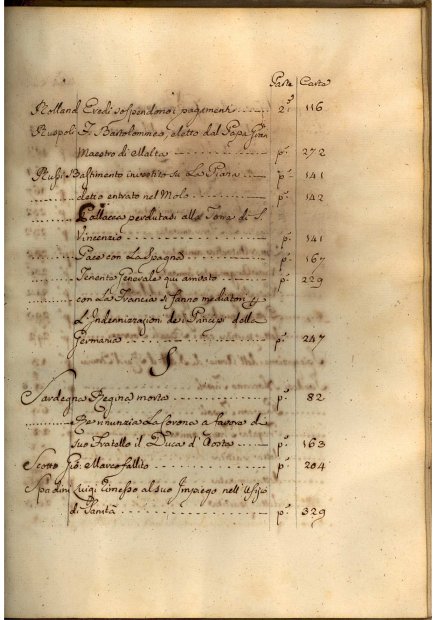 Parte Carte
Rolland Eredi sospendono i pagamenti 2ª 116
Ruspoli F. Bartolommeo, eletto dal Papa Gran
Maestro di Malta pª 272
Russi Bastimento investito su La Piana pª 141
detto entrato nel Molo pª 142
Pallacca perdutasi alla Torre di S.
Vincenzio pª 141
Pace con La Spagna pª 167
Tenente Generale qui arrivato pª 229
con La Francia si fanno mediatori
L'Indennizzazioni de i Principi della
Germania pª 247
S
Sardegna Regina morta pª 82
Renunzia La Corona a favore di
suo Fratello il Duca d'Aosta pª 163
Scotto Gio: Marco fallito pª 204
Spadini Luigi rimesso al suo Impiego nell'Ufizio
di Sanità pª 329